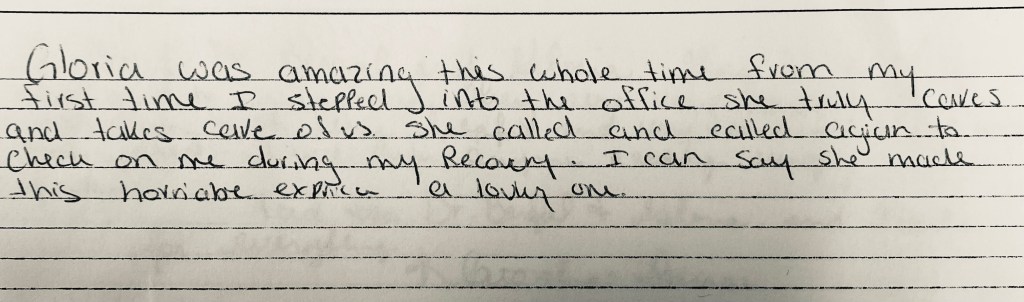 Gloria was amazing this whole time from my
first time I stepped into the office she truly cares
and takes care of us she called and called again to
check on me during my Recovery. I can say she made
this horriabe exprice a lovly one.